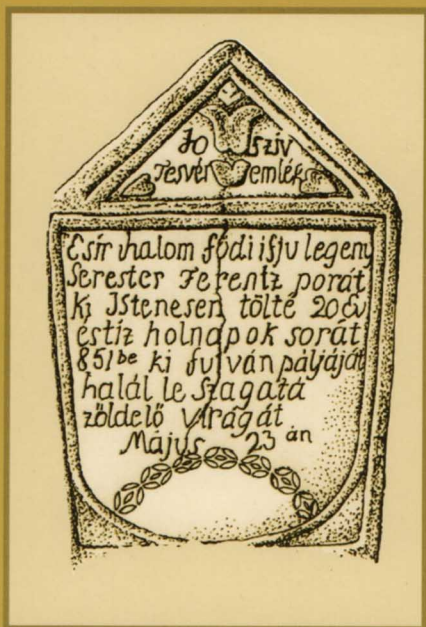 Jo szív
Tesvér emlék
E sír halom födi isju legeny
Serester Ferentz porát
ki Istenesen tölté 20 Ev
éstiz holnapok sorát
851be ki fu ván pályáját
halál le szagatá
zöldelő virágát
Május 23 án